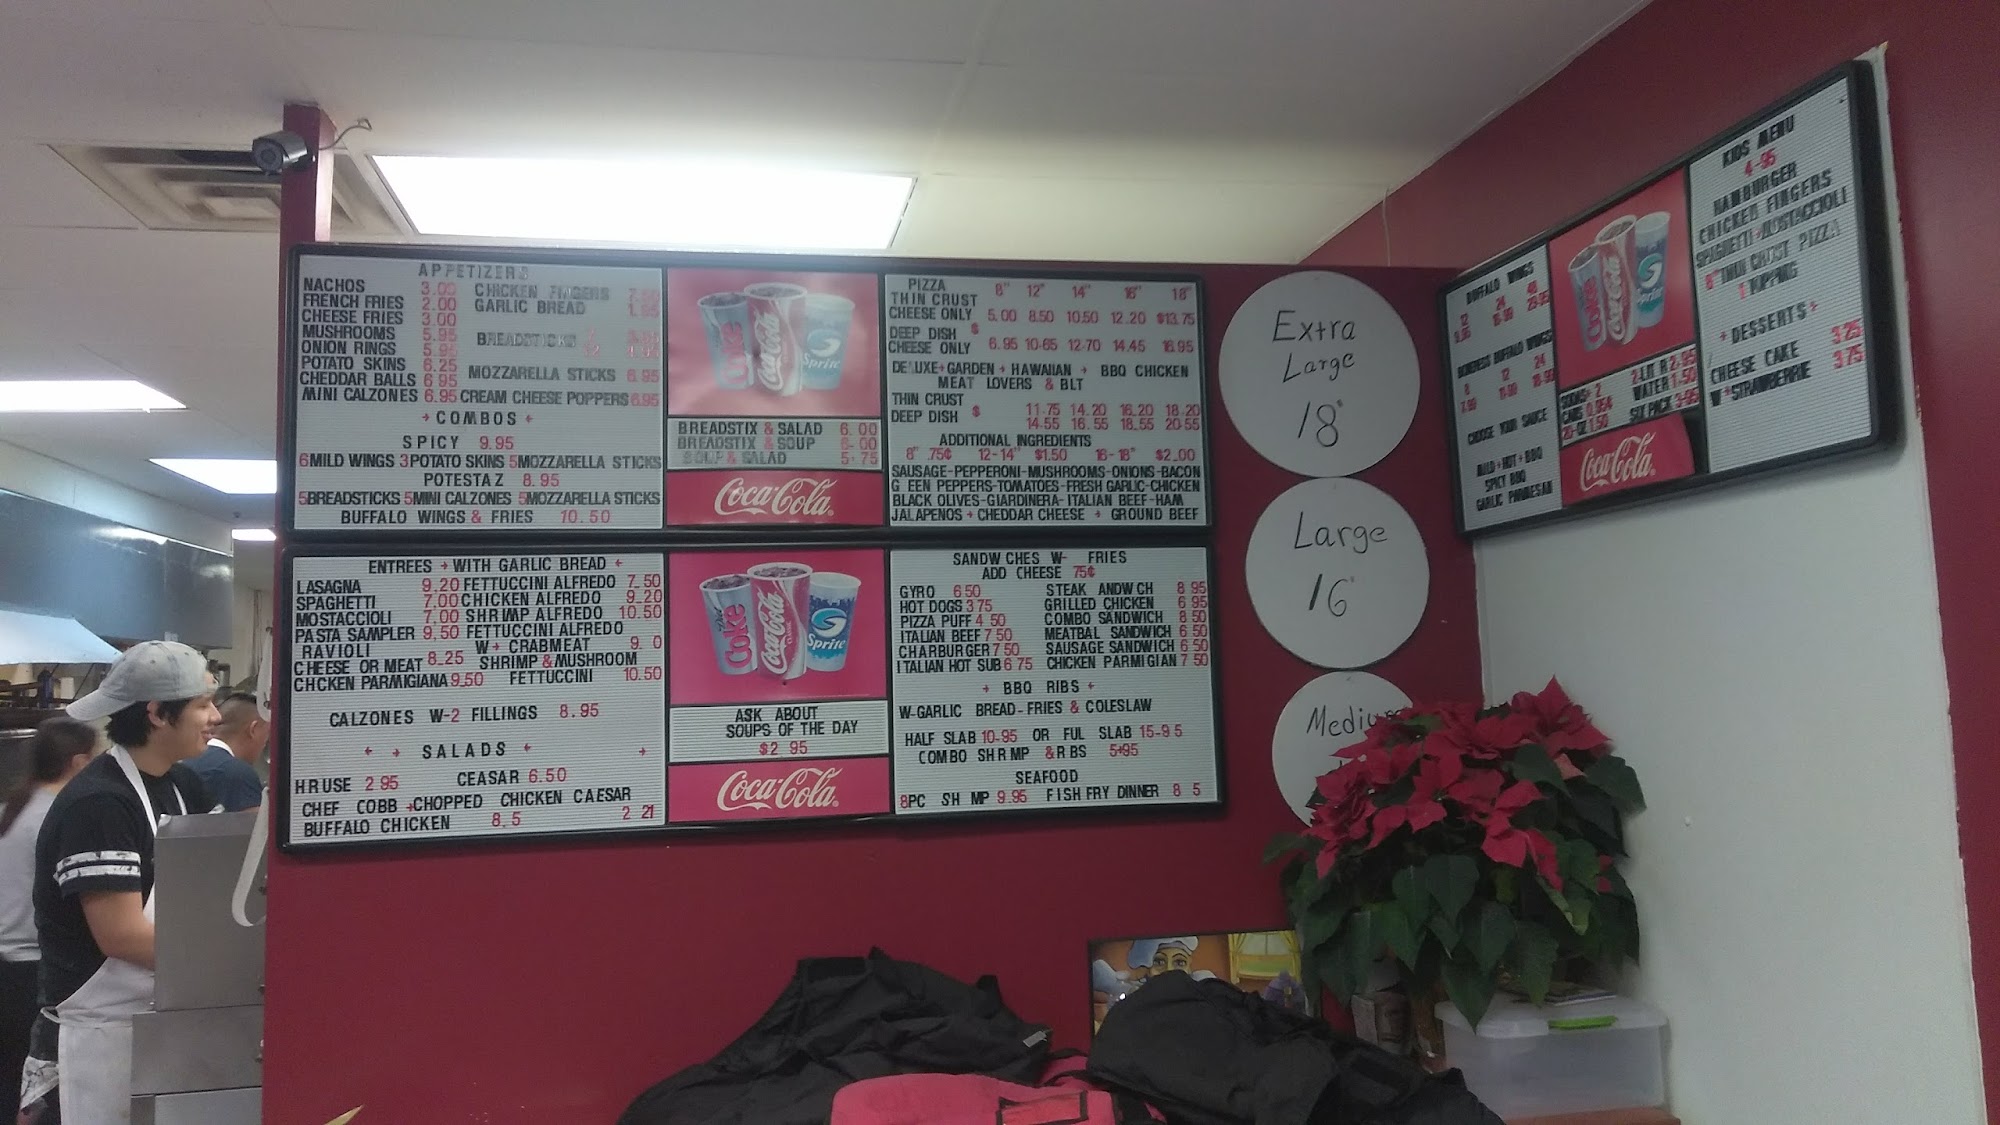 APPETIZERS
NACHOS 3.00 CHICKEN FINGERS
FRENCH FRIES 2.00 GARLIC BREAD 1.95
CHEESE FRIES 3.00
MUSHROOMS 5.95 BREADSTICKS
ONION RINGS 5.95
POTATO SKINS 6.25 MOZZARELLA STICKS 6.95
CHEDDAR BALLS 6 95
MINI CALZONES 6.95 CREAM CHEESE POPPERS 6.95
+ COMBOS +
SPICY 9.95
6 MILD WINGS 3 POTATO SKINS 5 MOZZARELLA STICKS
POTESTA Z 8.95
5 BREADSTICKS 5 MINI CALZONES 5 MOZZARELLA STICKS
BUFFALO WINGS & FRIES 10.50
Coke Coca-Cola Sprite
BREADSTIX & SALAD 6.00
BREADSTIX & SOUP 6-00
SOUP & SALAD 5-75
Coca-Cola
PIZZA 8" 12" 14" 16" 18"
THIN CRUST
CHEESE ONLY 5.00 8.50 10.50 12.20 $13.75
DEEP DISH $
CHEESE ONLY 6.95 10-65 12-70 14.45 16.95
DE LUXE + GARDEN + HAWAIIAN + BBQ CHICKEN
MEAT LOVERS & BLT
THIN CRUST 11.75 14.20 16.20 18.20
DEEP DISH $ 14.55 16.55 18.55 20.55
ADDITIONAL INGREDIENTS
8" .75¢ 12-14" $1.50 16-18" $2.00
SAUSAGE-PEPPERONI-MUSHROOMS-ONIONS-BACON
G EEN PEPPERS-TOMATOES-FRESH GARLIC-CHICKEN
BLACK OLIVES-GIARDINERA-ITALIAN BEEF-HAM
JALAPENOS + CHEDDAR CHEESE + GROUND BEEF
ENTREES + WITH GARLIC BREAD +
LASAGNA 9.20 FETTUCCINI ALFREDO 7.50
SPAGHETTI 7.00 CHICKEN ALFREDO 9.20
MOSTACCIOLI 7.00 SHRIMP ALFREDO 10.50
PASTA SAMPLER 9.50 FETTUCCINI ALFREDO
RAVIOLI W+ CRABMEAT 9. 0
CHEESE OR MEAT 8.25 SHRIMP & MUSHROOM
CHCKEN PARMIGIANA 9.50 FETTUCCINI 10.50
CALZONES W-2 FILLINGS 8.95
+ + SALADS + +
H RUSE 2.95 CEASAR 6.50
CHEF COBB + CHOPPED CHICKEN CAESAR
BUFFALO CHICKEN 8. 5 2 21
Coke Coca-Cola Sprite
ASK ABOUT
SOUPS OF THE DAY
$2 95
Coca-Cola
SANDW CHES W- FRIES
ADD CHEESE 75¢
GYRO 6 50 STEAK ANDW CH 8 95
HOT DOGS 3 75 GRILLED CHICKEN 6 95
PIZZA PUFF 4 50 COMBO SANDWICH 8 50
ITALIAN BEEF 7 50 MEATBAL SANDWICH 6 50
CHARBURGER 7 50 SAUSAGE SANDWICH 6 50
ITALIAN HOT SUB 6 75 CHICKEN PARMIGIAN 7 50
+ BBQ RIBS +
W-GARLIC BREAD-FRIES & COLESLAW
HALF SLAB 10-95 OR FUL SLAB 15-9 5
COMBO SHR MP & R BS 5+95
SEAFOOD
8PC SH MP 9.95 FISH FRY DINNER 8 5
Extra
Large
18"
Large
16"
Medium
BUFFALO WINGS
12 24 48
BONELESS BUFFALO WINGS
8 12 24
CHOOSE YOUR SAUCE
MILD + HOT + BBQ
SPICY BBQ
GARLIC PARMESAN
Coke Coca-Cola Sprite
2-LIT R 2-95
WATER 1-50
CANS 0.95¢
20-OZ 1.50
SIX PACK 3-95
Coca-Cola
KIDS MENU
4-95
HAMBURGER
CHICKEN FINGERS
SPAGHETTI + MOSTACCIOLI
8" THIN CRUST PIZZA
1 TOPPING
+ DESSERTS +
CHEESE CAKE 3.25
W + STRAWBERRIE 3.75